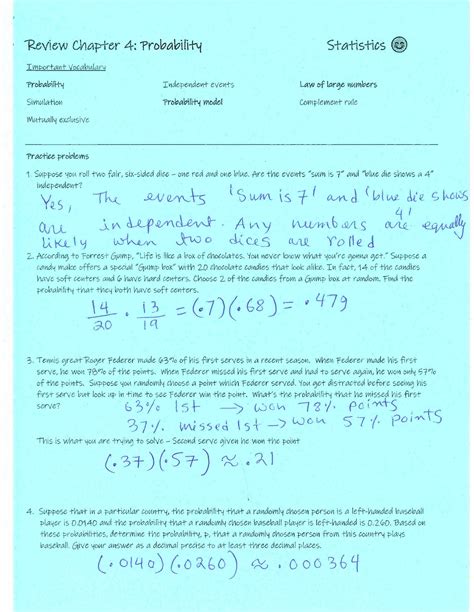 Review Chapter 4: Probability Statistics
Important Vocabulary
Probability Independent events Law of large numbers
Simulation Probability model Complement rule
Mutually exclusive
Practice problems
1. Suppose you roll two fair, six-sided dice – one red and one blue. Are the events "sum is 7" and "blue die shows a 4"
independent?
Yes, The events 'Sum is 7' and 'blue die shows
4'
are independent. Any numbers are equally
likely when two dices are rolled
2. According to Forrest Gump, "Life is like a box of chocolates. You never know what you're gonna get." Suppose a
candy make offers a special "Gump box" with 20 chocolate candies that look alike. In fact, 14 of the candies
have soft centers and 6 have hard centers. Choose 2 of the candies from a Gump box at random. Find the
probability that they both have soft centers.
14/20 · 13/19 = (.7)(.68) = .479
3. Tennis great Roger Federer made 63% of his first serves in a recent season. When Federer made his first
serve, he won 78% of the points. When Federer missed his first serve and had to serve again, he won only 57%
of the points. Suppose you randomly choose a point which Federer served. You get distracted before seeing his
first serve but look up in time to see Federer win the point. What's the probability that he missed his first
serve?
63% 1st → won 78% points
37% missed 1st → won 57% points
This is what you are trying to solve – Second serve given he won the point
(.37)(.57) ≈ .21
4. Suppose that in a particular country, the probability that a randomly chosen person is a left-handed baseball
player is 0.0140 and the probability that a randomly chosen baseball player is left-handed is 0.260. Based on
these probabilities, determine the probability, p, that a randomly chosen person from this country plays
baseball. Give your answer as a decimal precise to at least three decimal places.
(.0140)(.0260) ≈ .000364